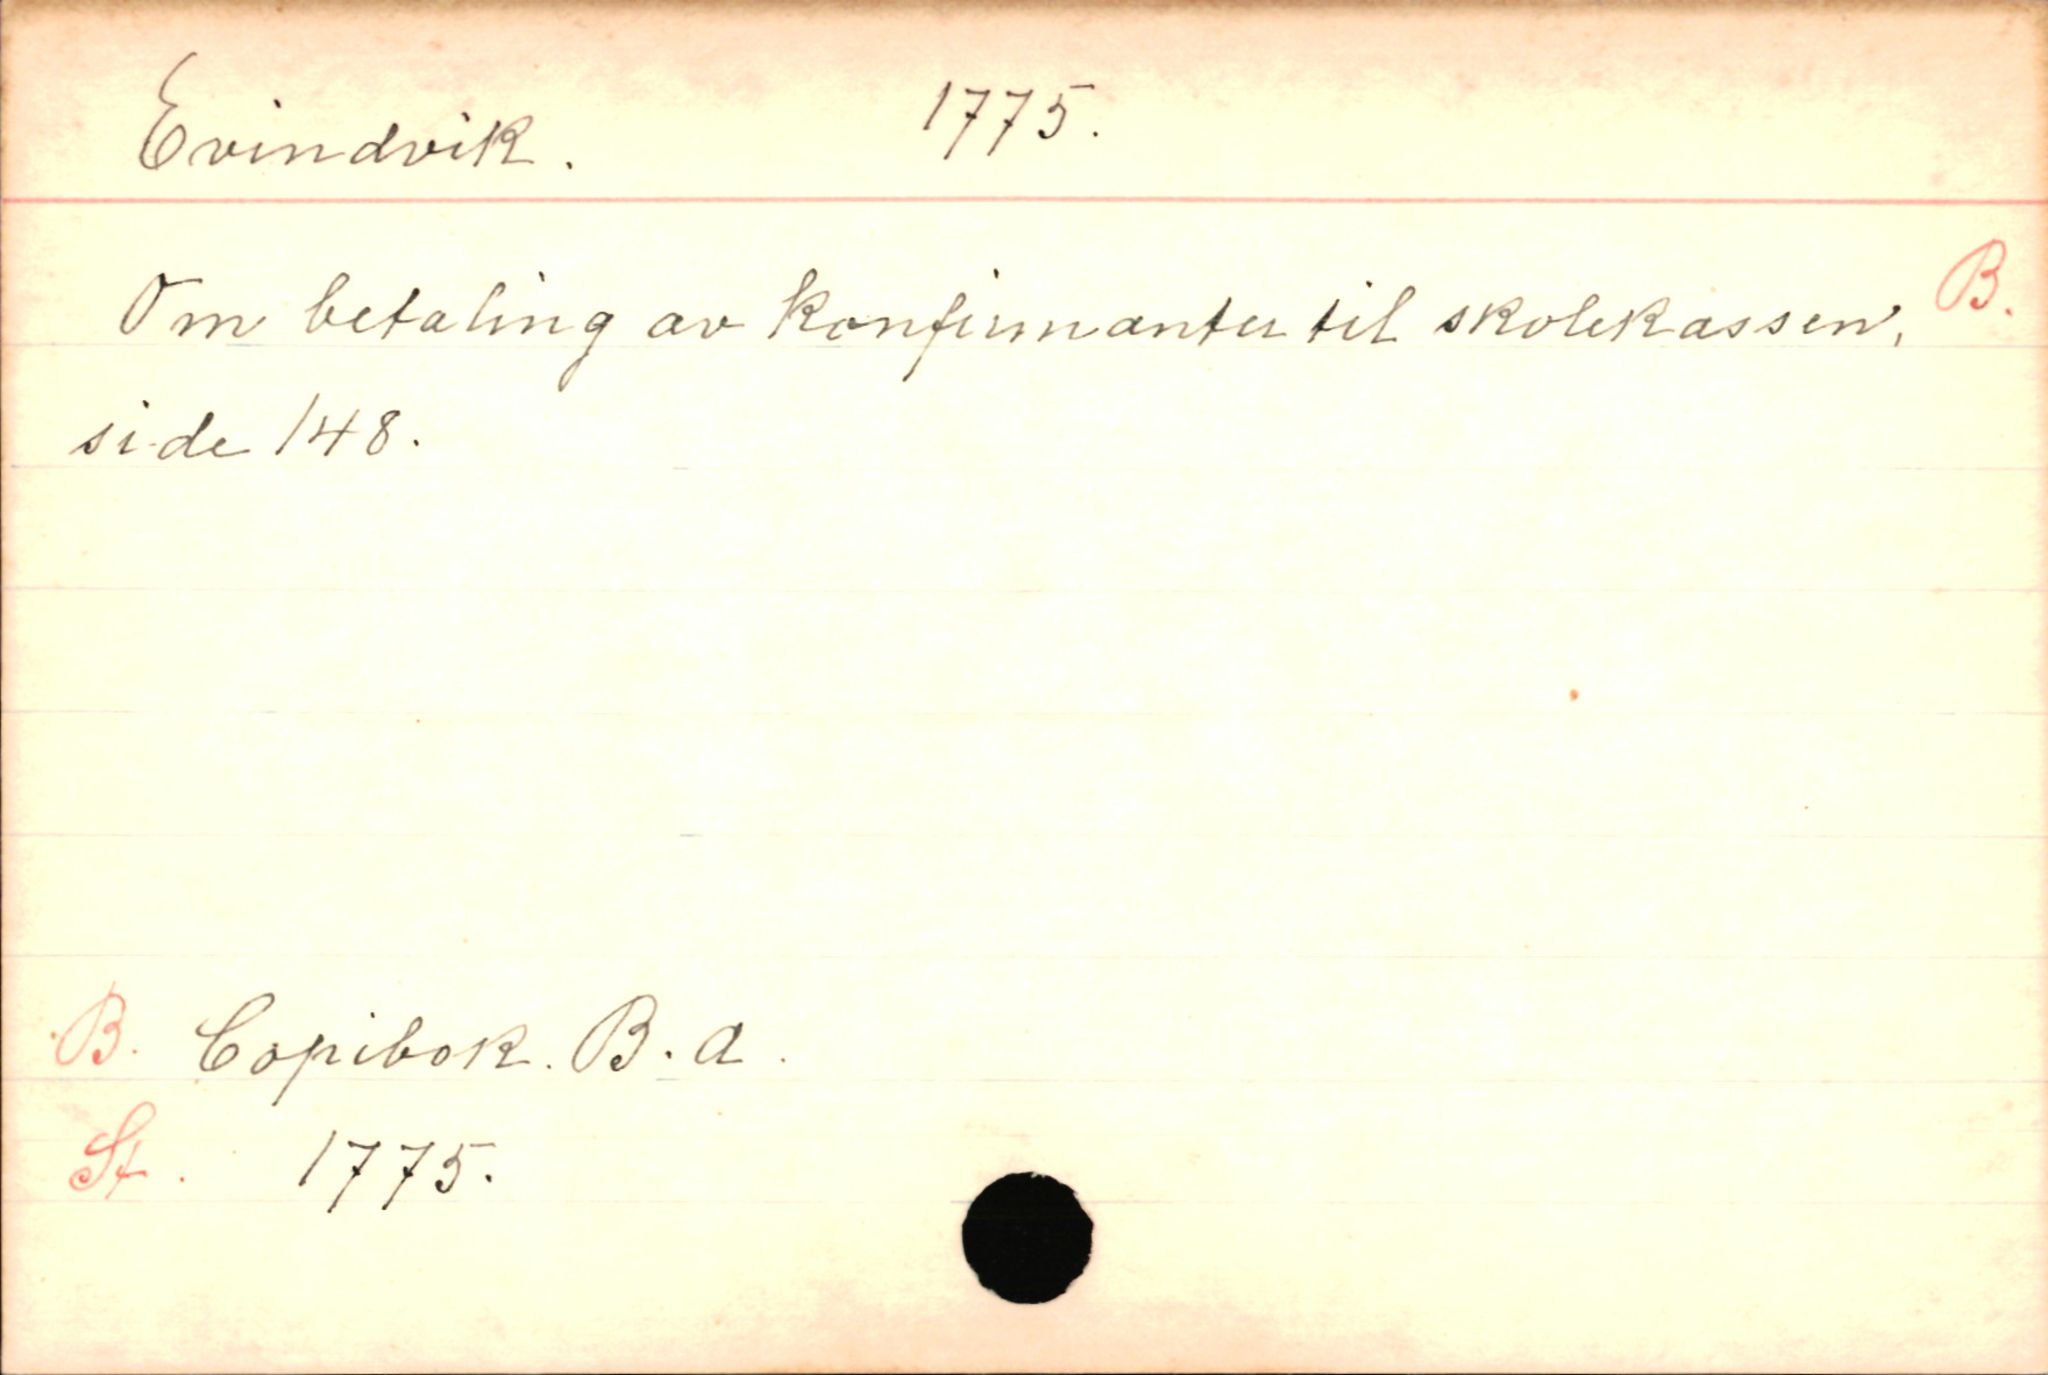 Evindvik. 1775.
Om betaling av konfirmanter til skolekassen, B.
side 148.
B. Copibok. B. a.
St. 1775.